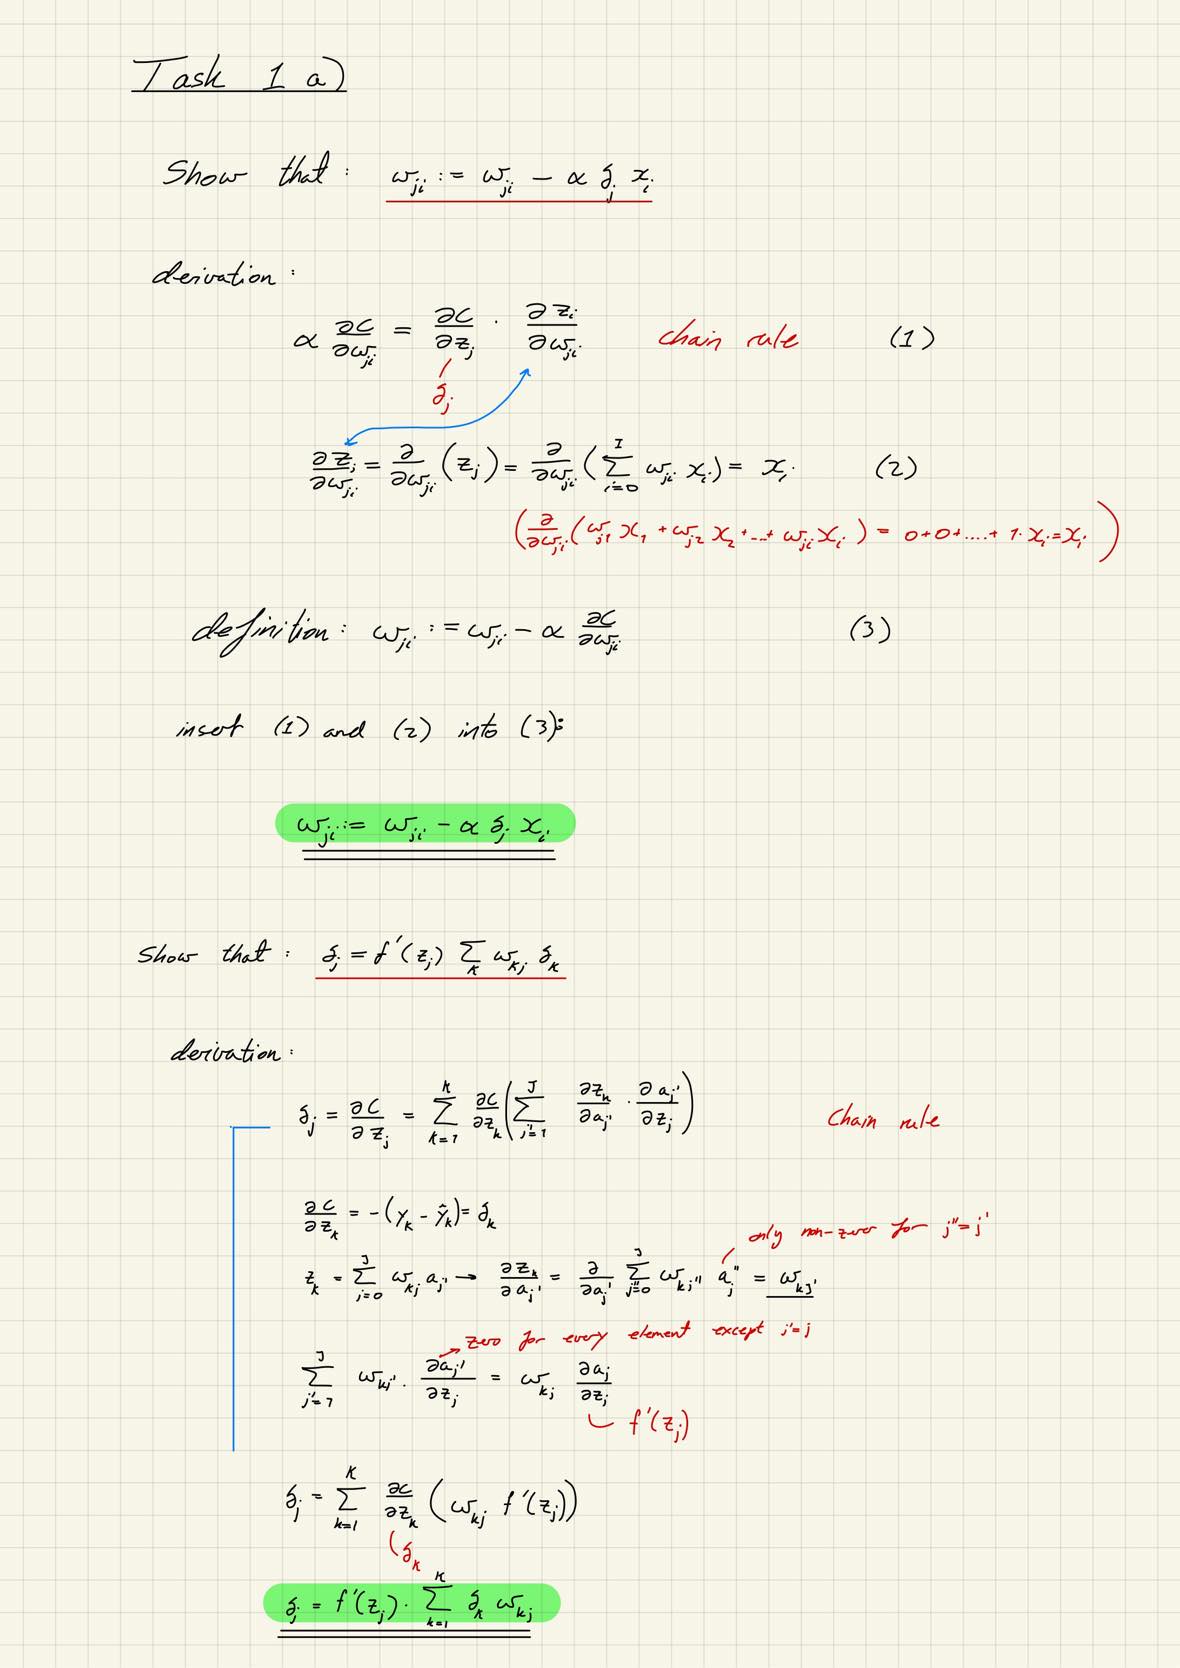 Task 1 a)
Show that: w_ji := w_ji − α δ_j x_i
derivation:
α ∂C/∂w_ji = ∂C/∂z_j · ∂z_i/∂w_ji chain rule (1)
δ_j
∂z_j/∂w_ji = ∂/∂w_ji (z_j) = ∂/∂w_ji (∑_{i=0}^{I} w_ji x_i) = x_i (2)
(∂/∂w_ji (w_j1 x_1 + w_j2 x_2 + ... + w_ji x_i) = 0+0+....+ 1·x_i = x_i)
definition: w_ji := w_ji − α ∂C/∂w_ji (3)
insert (1) and (2) into (3):
w_ji := w_ji − α δ_j x_i
Show that: δ_j = f'(z_j) ∑_k w_kj δ_k
derivation:
δ_j = ∂C/∂z_j = ∑_{k=1}^{K} ∂C/∂z_k (∑_{j'=1}^{J} ∂z_k/∂a_j' · ∂a_j'/∂z_j) Chain rule
∂C/∂z_k = −(y_k − ŷ_k) = δ_k
only non-zero for j''=j'
z_k = ∑_{j=0}^{J} w_kj a_j' → ∂z_k/∂a_j' = ∂/∂a_j' ∑_{j''=0}^{J} w_kj'' a_j'' = w_kj'
zero for every element except j'=j
∑_{j'=1}^{J} w_kj' · ∂a_j'/∂z_j = w_kj ∂a_j/∂z_j
f'(z_j)
δ_j = ∑_{k=1}^{K} ∂C/∂z_k (w_kj f'(z_j))
δ_k
δ_j = f'(z_j) · ∑_{k=1}^{K} δ_k w_kj